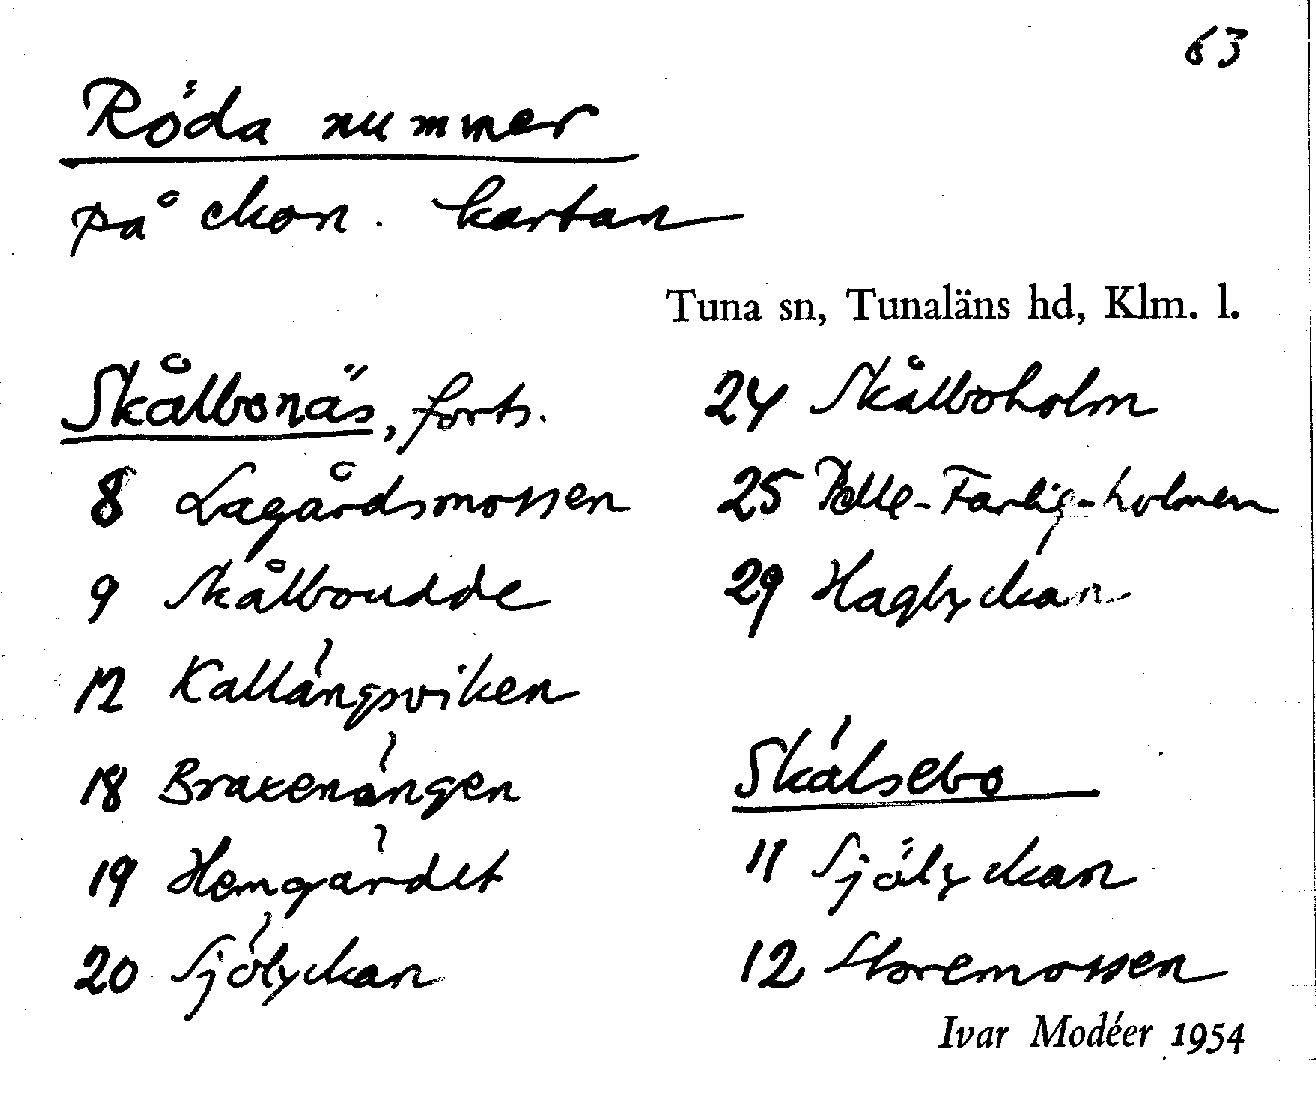 63
Röda nummer
på ekon. kartan
Tuna sn, Tunaläns hd, Klm. l.
Skålbonäs, forts.
8 Lagårdsmossen
9 Skålboudde
12 Kallängsviken
18 Braxenängen
19 Hemgärdet
20 Sjölyckan
24 Skålboholm
25 Pelle-Farlig-holmen
29 Haglyckan
Skälsebo
11 Sjölyckan
12 Storemossen
Ivar Modéer 1954